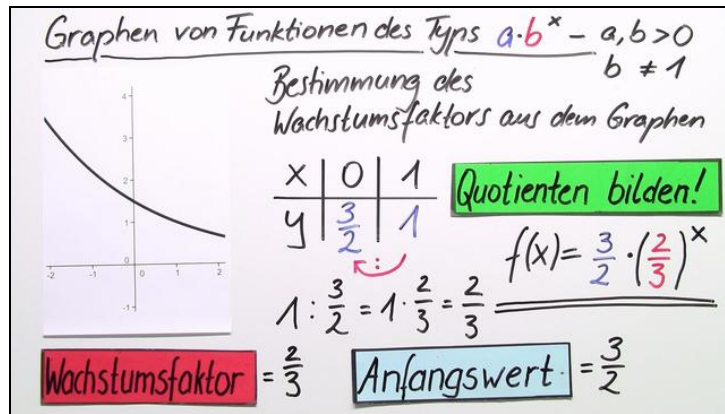 Graphen von Funktionen des Typs a·b^x – a, b > 0
b ≠ 1
Bestimmung des
Wachstumsfaktors aus dem Graphen
4
3
2
1
-2 -1 0 1 2
-1
x | 0 | 1
y | 3/2 | 1
:
Quotienten bilden!
f(x) = 3/2 · (2/3)^x
1 : 3/2 = 1 · 2/3 = 2/3
Wachstumsfaktor = 2/3
Anfangswert = 3/2